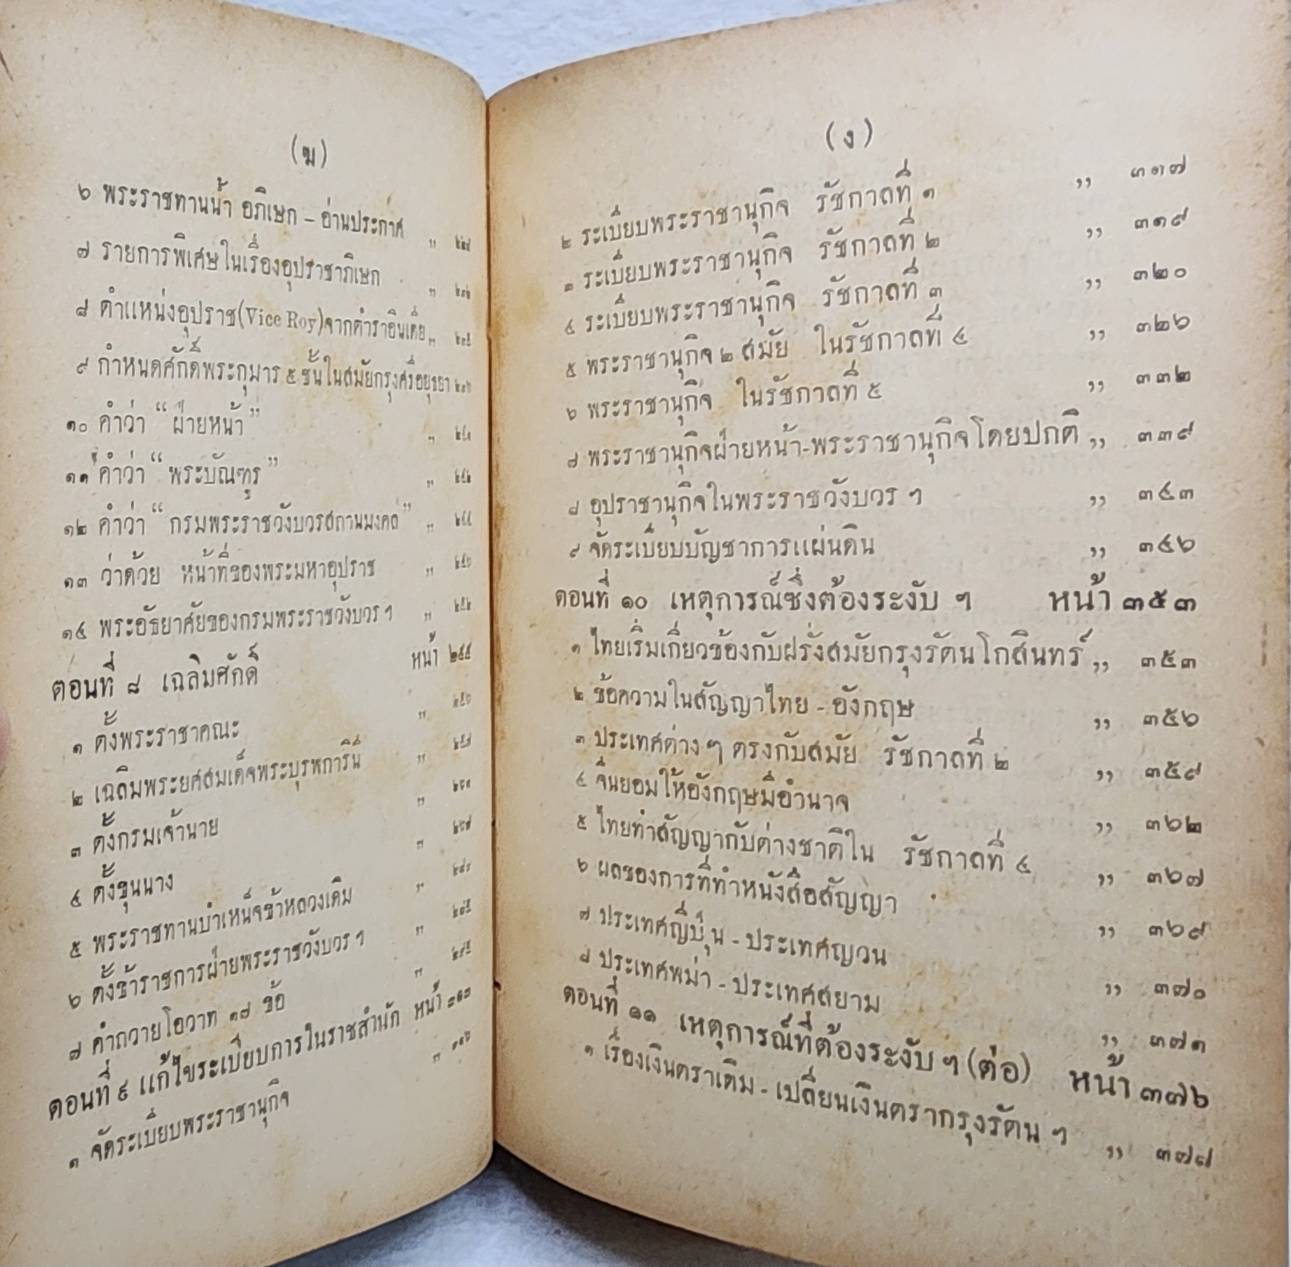 (ฆ)
๖ พระราชทานน้ำ อภิเษก – อ่านประกาศ ,,
๗ รายการพิเศษในเรื่องอุปราชาภิเษก ,,
๘ ตำแหน่งอุปราช(Vice Roy)จากตำราอินเดีย ,,
๙ กำหนดศักดิ์พระกุมาร ๕ ชั้นในสมัยกรุงศรีอยุธยา
๑๐ คำว่า “ฝ่ายหน้า” ,,
๑๑ คำว่า “พระบัณฑูร” ,,
๑๒ คำว่า “กรมพระราชวังบวรสถานมงคล” ,,
๑๓ ว่าด้วย หน้าที่ของพระมหาอุปราช ,,
๑๔ พระอัธยาศัยของกรมพระราชวังบวร ฯ ,,
ตอนที่ ๘ เฉลิมศักดิ์ หน้า ๒๕๕
๑ ตั้งพระราชาคณะ ,,
๒ เฉลิมพระยศสมเด็จพระบุรพการินี ,,
๓ ตั้งกรมเจ้านาย ,,
๔ ตั้งขุนนาง ,,
๕ พระราชทานบำเหน็จข้าหลวงเดิม ,,
๖ ตั้งข้าราชการฝ่ายพระราชวังบวร ฯ ,,
๗ คำถวายโอวาท ๑๗ ข้อ ,,
ตอนที่ ๙ แก้ไขระเบียบการในราชสำนัก หน้า
๑ จัดระเบียบพระราชานุกิจ ,,
(ง)
๒ ระเบียบพระราชานุกิจ รัชกาลที่ ๑ ,, ๓๑๗
๓ ระเบียบพระราชานุกิจ รัชกาลที่ ๒ ,, ๓๑๙
๔ ระเบียบพระราชานุกิจ รัชกาลที่ ๓ ,, ๓๒๐
๕ พระราชานุกิจ ๒ สมัย ในรัชกาลที่ ๔ ,, ๓๒๖
๖ พระราชานุกิจ ในรัชกาลที่ ๕ ,, ๓๓๒
๗ พระราชานุกิจฝ่ายหน้า-พระราชานุกิจโดยปกติ ,, ๓๓๙
๘ อุปราชานุกิจในพระราชวังบวร ฯ ,, ๓๔๓
๙ จัดระเบียบบัญชาการแผ่นดิน ,, ๓๔๖
ตอนที่ ๑๐ เหตุการณ์ซึ่งต้องระงับ ฯ หน้า ๓๕๓
๑ ไทยเริ่มเกี่ยวข้องกับฝรั่งสมัยกรุงรัตนโกสินทร์ ,, ๓๕๓
๒ ข้อความในสัญญาไทย - อังกฤษ ,, ๓๕๖
๓ ประเทศต่าง ๆ ตรงกับสมัย รัชกาลที่ ๒ ,, ๓๕๙
๔ จีนยอมให้อังกฤษมีอำนาจ ,, ๓๖๒
๕ ไทยทำสัญญากับต่างชาติใน รัชกาลที่ ๔ ,, ๓๖๗
๖ ผลของการที่ทำหนังสือสัญญา ,, ๓๖๙
๗ ประเทศญี่ปุ่น - ประเทศญวน ,, ๓๗๐
๘ ประเทศพม่า - ประเทศสยาม ,, ๓๗๑
ตอนที่ ๑๑ เหตุการณ์ที่ต้องระงับ ฯ (ต่อ) หน้า ๓๗๖
๑ เรื่องเงินตราเดิม - เปลี่ยนเงินตรากรุงรัตน ฯ ,,